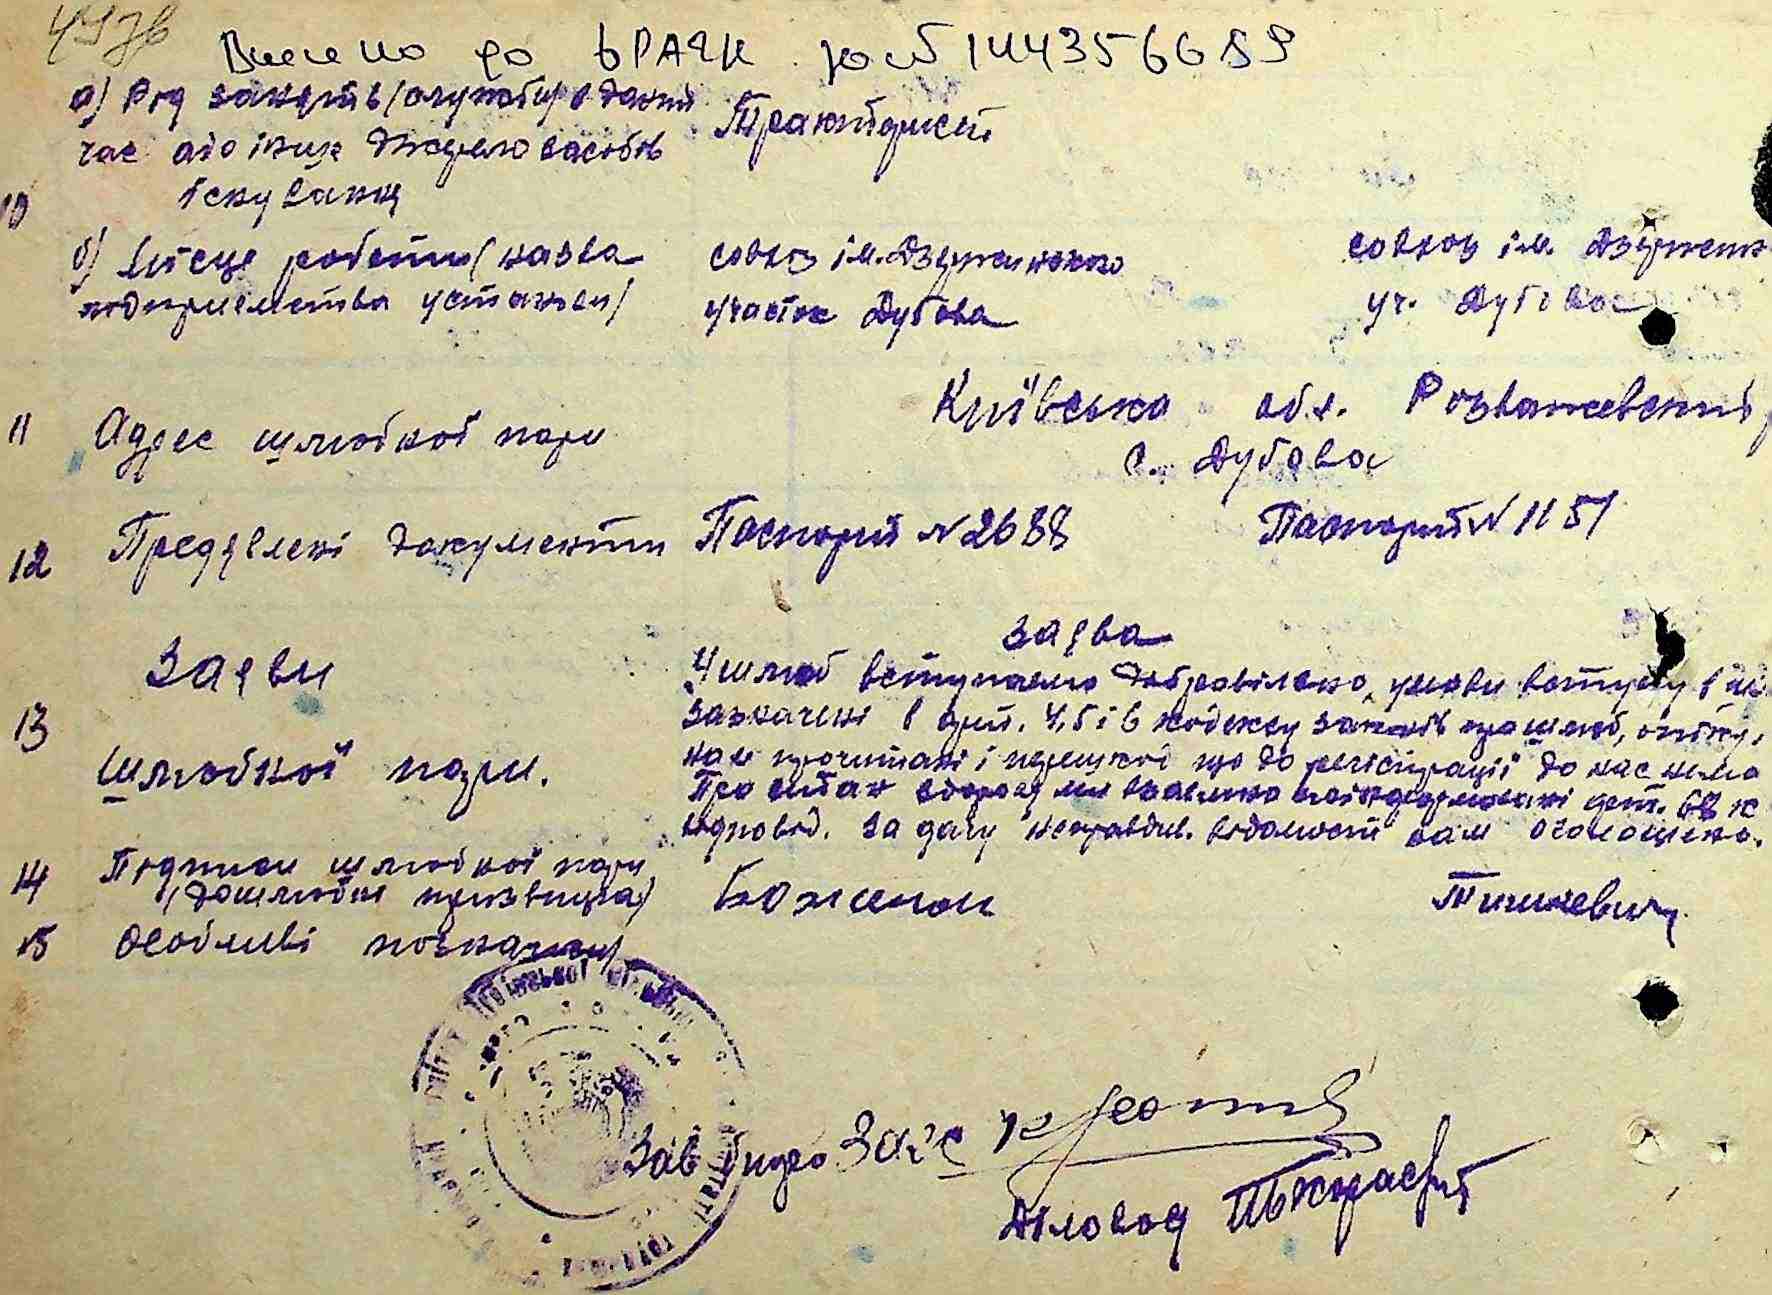 Внесено до ДРАЦС 00144356689
а) Рід занятів (служби) в даний
час або інше джерело засобів
існування
Тракторист
10
б) Місце роботи (назва
подприємства установи)
совхоз ім. Дзержинського
участок Дубова
совхоз ім. Дзержинс
уч. Дубова
11 Адрес шлюбної пари
Київська обл. Розважевський р
с. Дубова
12 Предявлені документи
Паспорт № 2688
Паспорт № 1151
13 Заяви
шлюбної пари.
Заява
У шлюб вступаємо добровільно, умови вступу в
зазначені в арт. 4, 5 і 6 кодексу законів про шлюб, опіку,
нам прочитані і перешкод що до регістрації до нас нема
Про стан здоров'я ми взаємно поінформовані
відповід. за дачу неправдив. відомості нам оголошено.
14 Підписи шлюбної пари
(дошлюбні прізвища)
Боженок
Тишкевич
15 Особливі позначки
Зав бюро Загс
Діловод